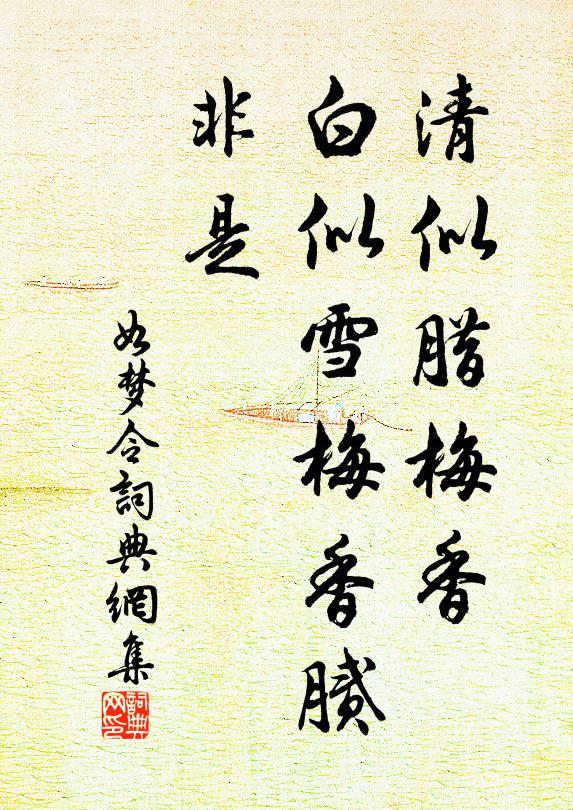 清似腊梅香
白似雪梅香膩
非是
如梦令詞典網集
詞典
网印